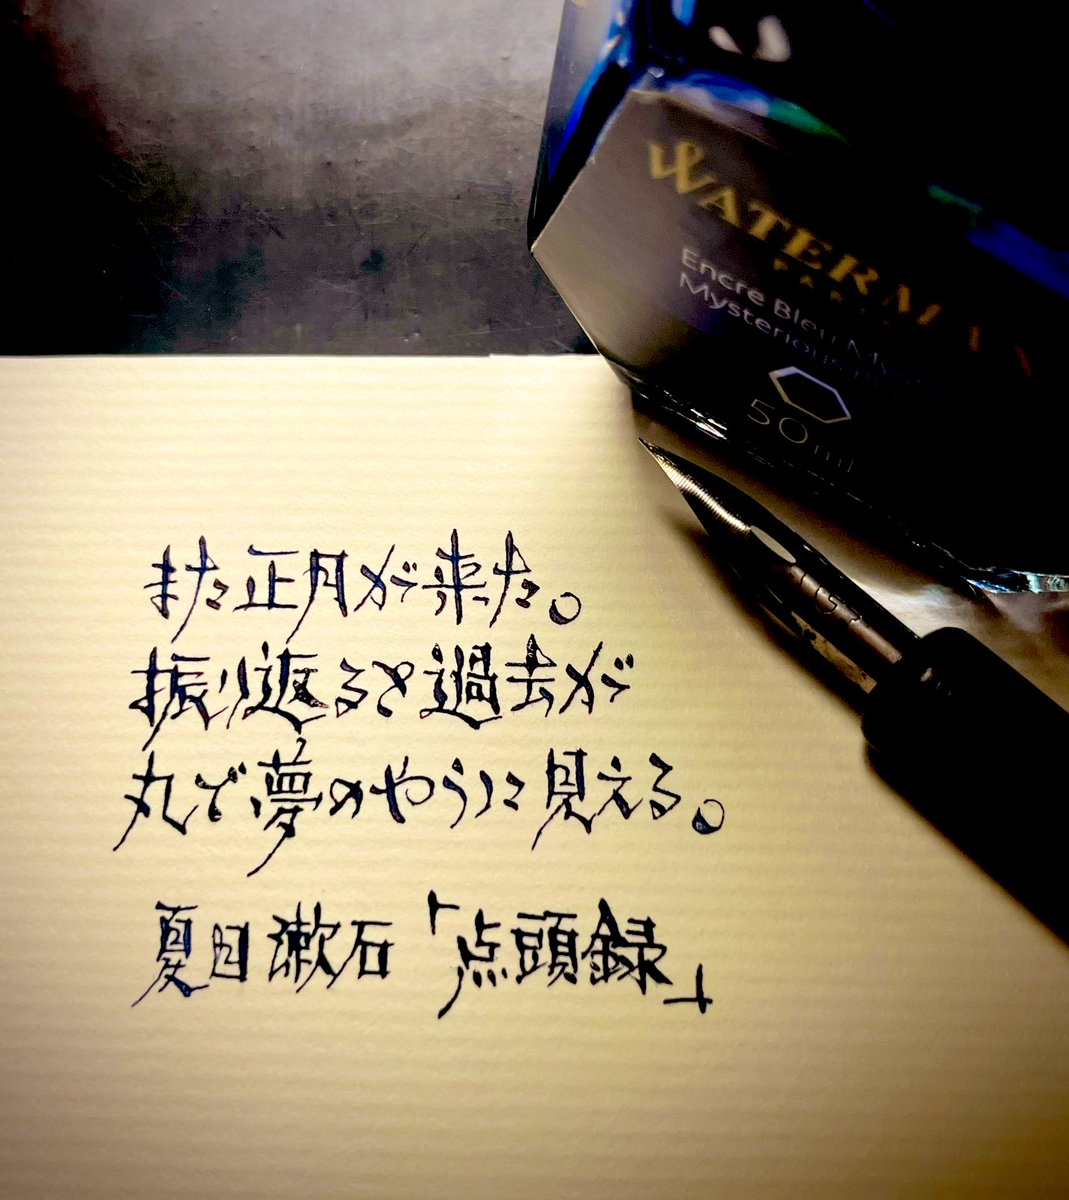 WATERMAN
PARIS
Encre Bleu
Mysterious
50 ml
また正月が来た。
振り返ると過去が
丸で夢のやうに見える。
夏目漱石「点頭録」